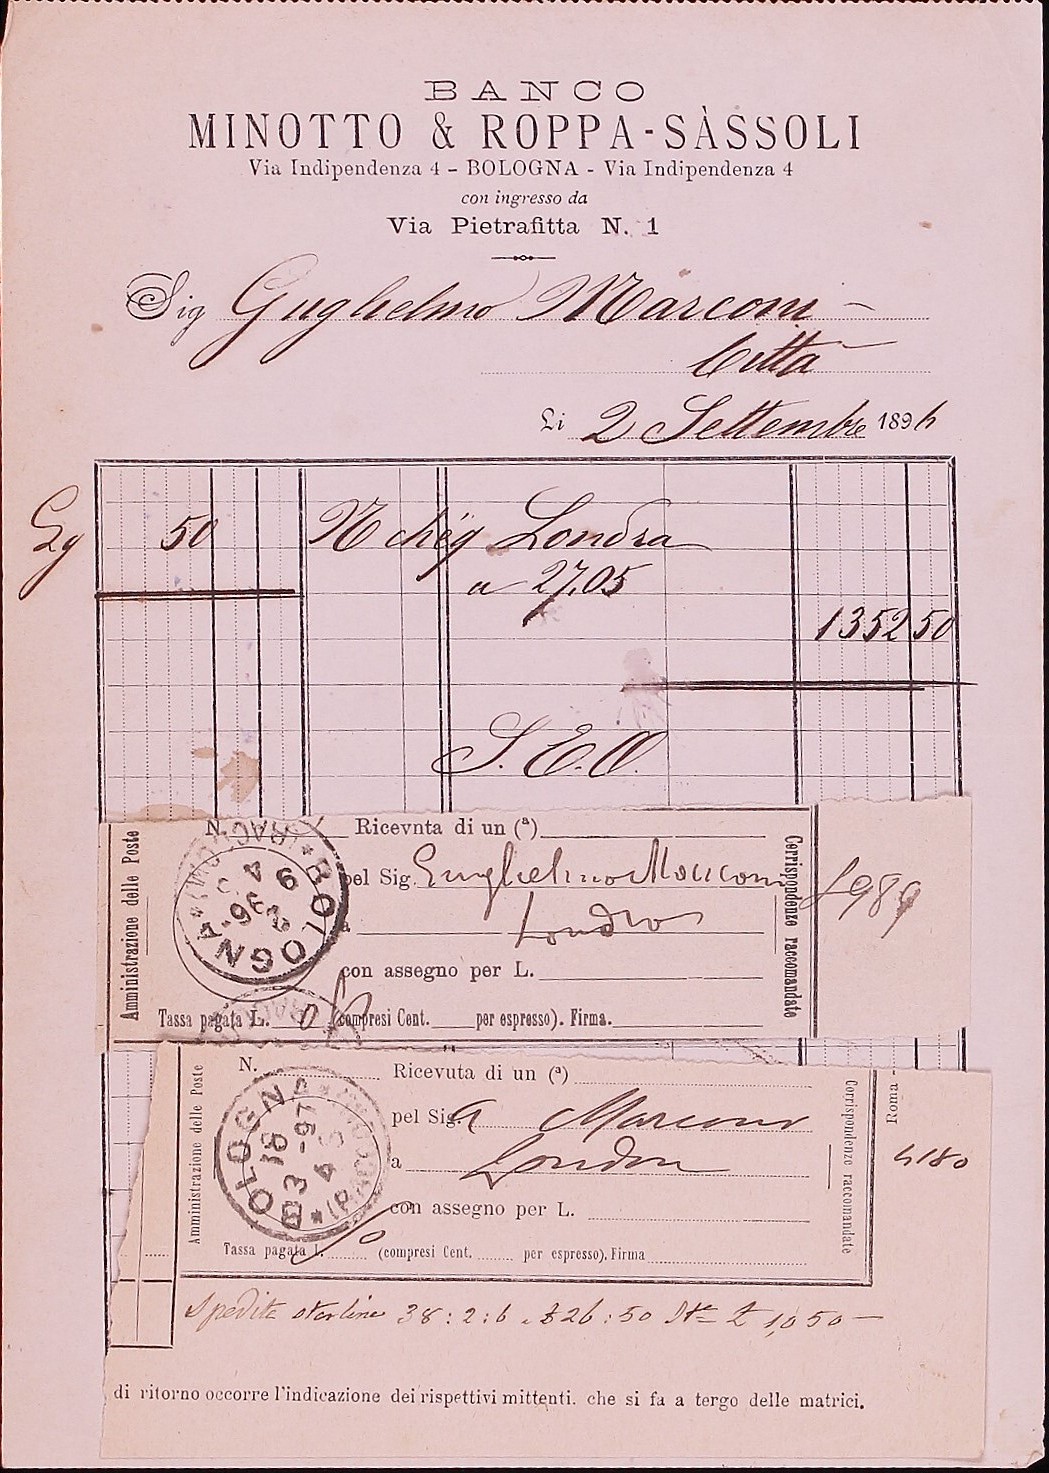 BANCO
MINOTTO & ROPPA-SÀSSOLI
Via Indipendenza 4 - BOLOGNA - Via Indipendenza 4
con ingresso da
Via Pietrafitta N. 1
Sig Guglielmo Marconi
Città
Li 2 Settembre 1896
Lg 50 N chéq Londra
a 27,05
1352 50
S. E. O.
N. Ricevnta di un (ª)
Amministrazione delle Poste
BOLOGNA
pel Sig. Guglielmo Marconi
Corrispondenze raccomandate
a Londra
con assegno per L.
Tassa pagata L. (compresi Cent. per espresso). Firma.
N. Ricevuta di un (ª)
Amministrazione delle Poste
BOLOGNA
18
3 -97
4 S
pel Sig. G Marconi
a London
Corrispondenze raccomandate
Roma -
4180
con assegno per L.
Tassa pagata L. (compresi Cent. per espresso). Firma
Spedite sterline 38:2:6 a 26:50 1,050
di ritorno occorre l'indicazione dei rispettivi mittenti. che si fa a tergo delle matrici.